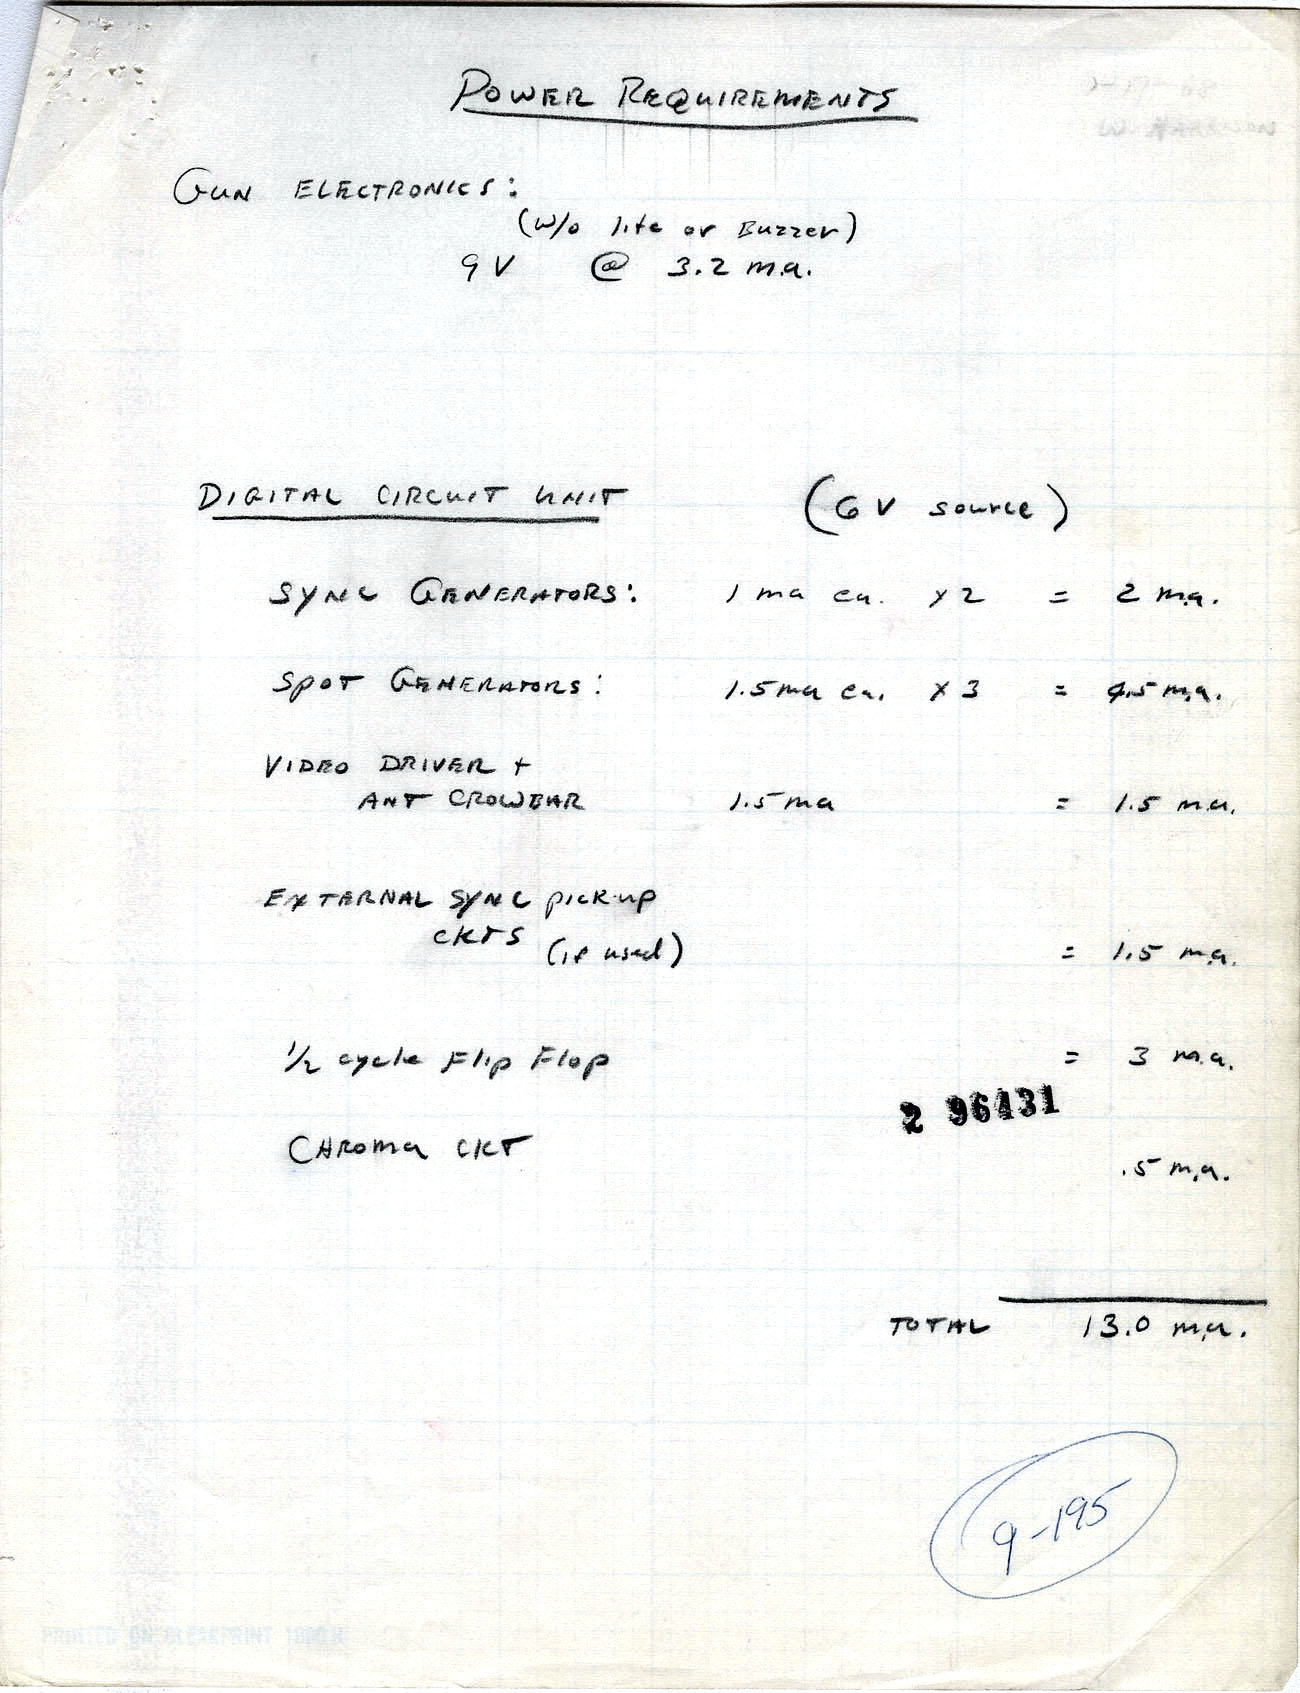 POWER REQUIREMENTS
W. HARRISON
GUN ELECTRONICS:
(w/o lite or Buzzer)
9 V @ 3.2 m.a.
DIGITAL CIRCUIT UNIT (6 V source)
SYNC GENERATORS: 1 ma ea. x 2 = 2 m.a.
SPOT GENERATORS: 1.5 ma ea. x 3 = 4.5 m.a.
VIDEO DRIVER +
ANT CROWBAR 1.5 ma = 1.5 m.a.
EXTERNAL SYNC pick-up
CKTS (if used) = 1.5 m.a.
1/2 cycle Flip Flop = 3 m.a.
2 96431
CHROMA CKT .5 m.a.
TOTAL 13.0 m.a.
9-195
PRINTED ON CLEARPRINT 1000H